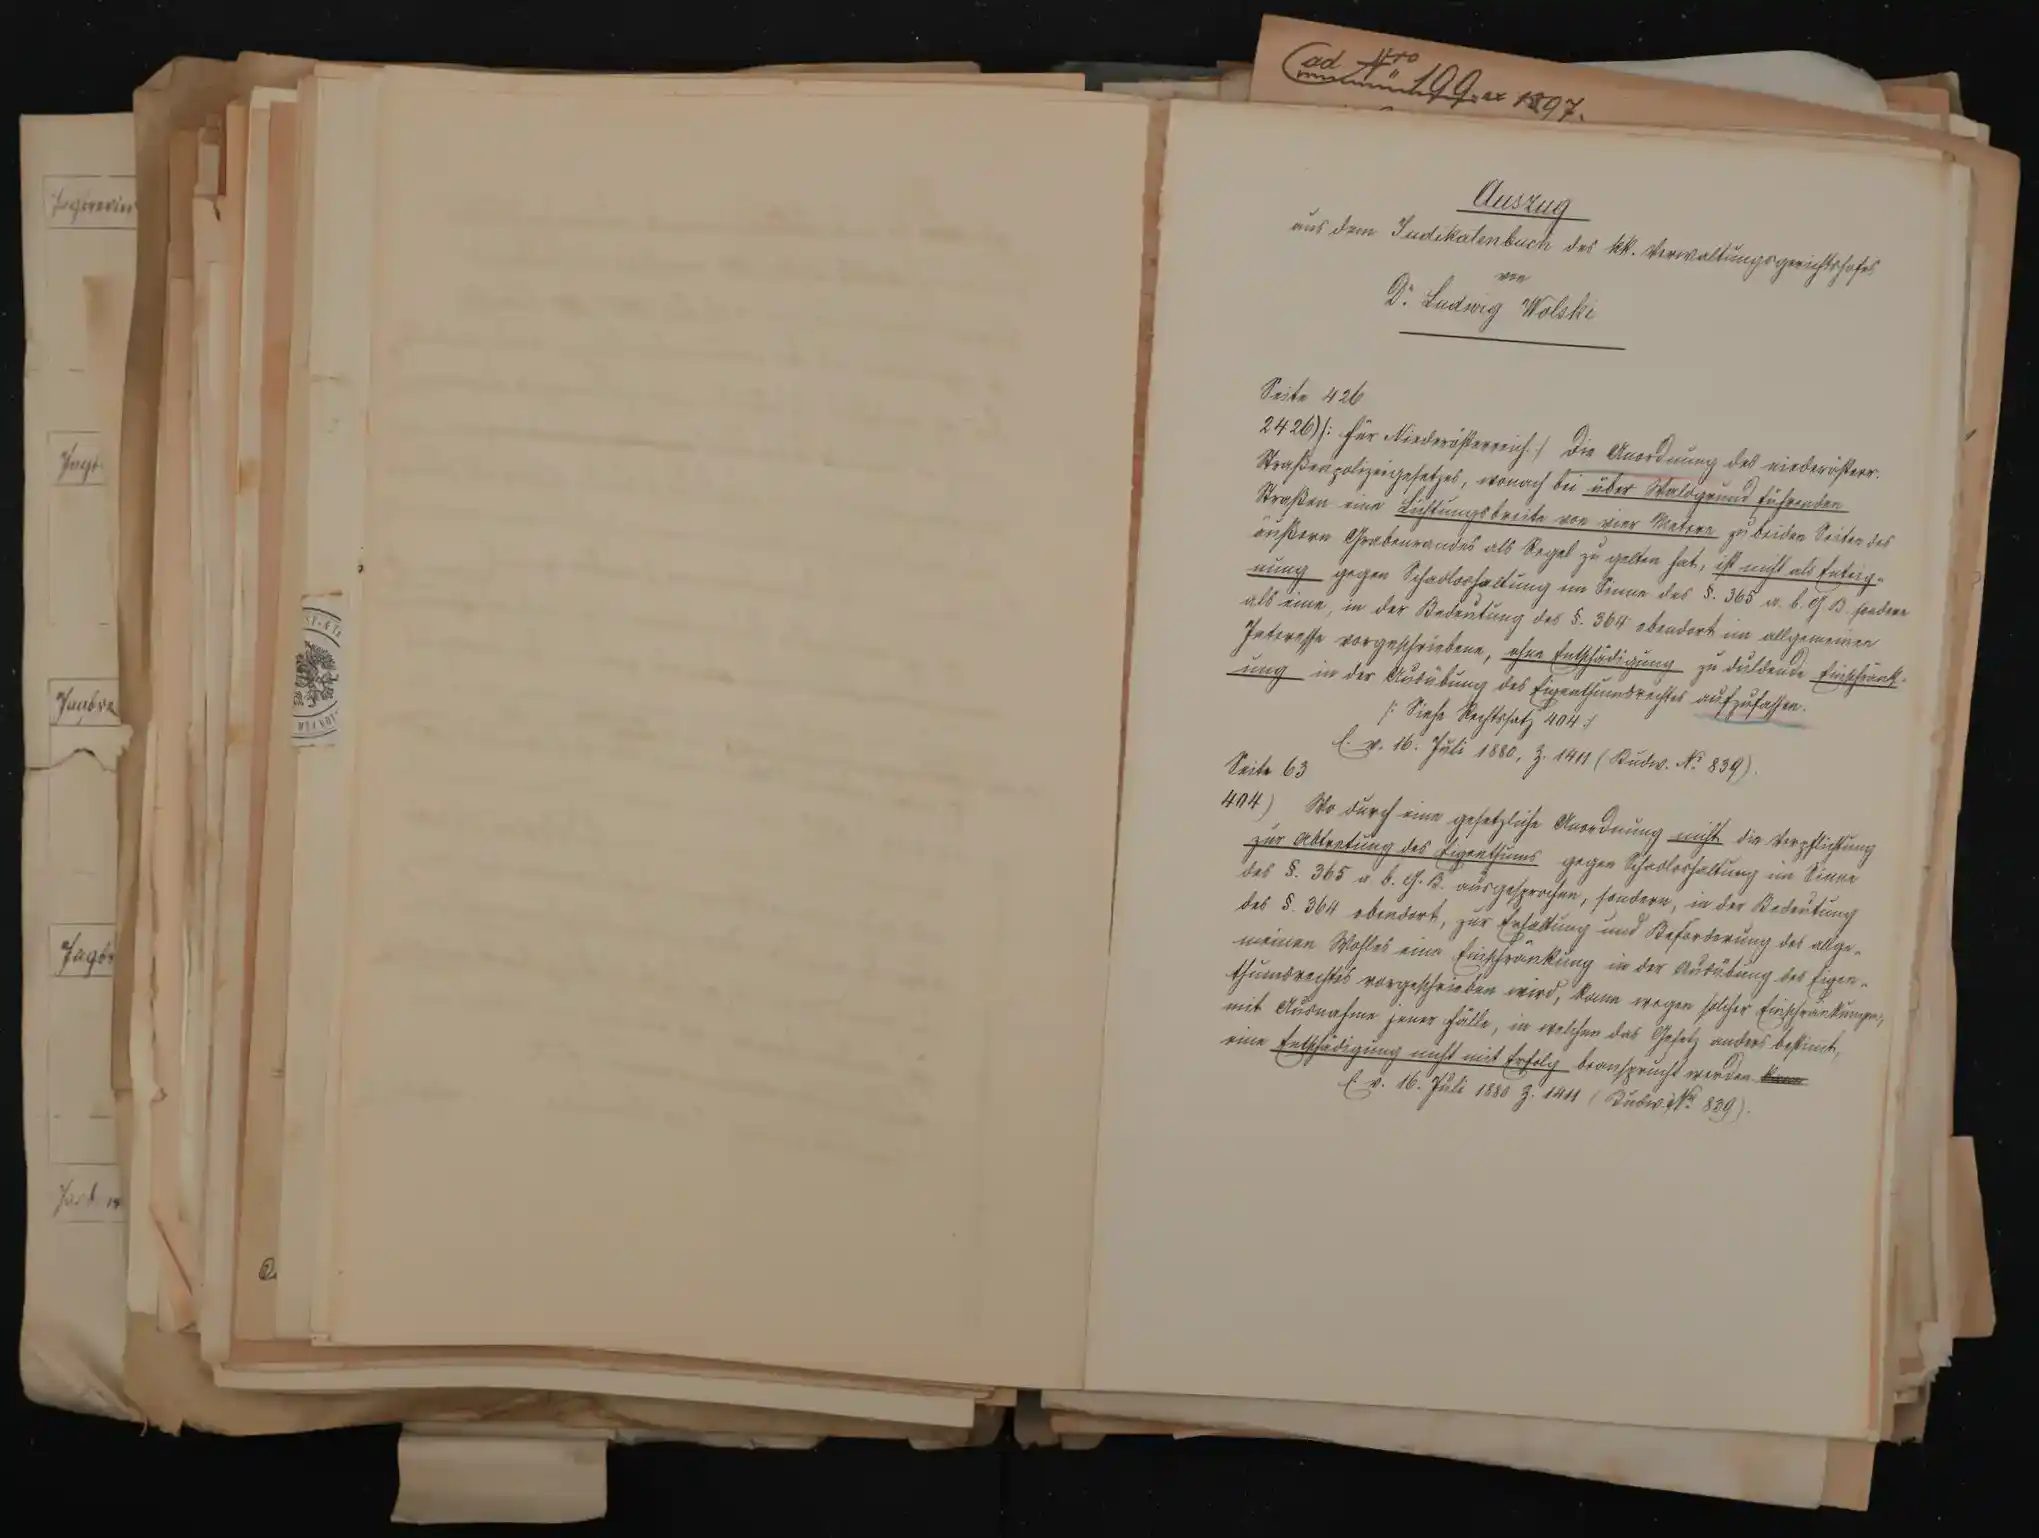 Jagdrevier
Jagd-
Jagdre
Jagdr
ad Nro 199 ex 1897.
Auszug
aus dem Judikatenbuch des kk. Verwaltungsgerichtshofes
von
Dr. Ludwig Wolski
Seite 426
2426) /: für Niederösterreich :/ Die Anordnung des niederösterr.
Straßenpolizeigesetzes, wonach bei über Waldgrund führenden
Straßen eine Lichtungsbreite von vier Metern zu beiden Seiten des
äußern Grabenrandes als Regel zu gelten hat, ist nicht als Enteig-
nung gegen Schadloshaltung im Sinne des §. 365 a. b. G. B. sondern
als eine, in der Bedeutung des §. 364 ebendort im allgemeinen
Interesse vorgeschriebene, ohne Entschädigung zu duldende Einschränk-
ung in der Ausübung des Eigenthumsrechtes aufzufassen.
/: Siehe Rechtssatz 404 :/
E. v. 16. Juli 1880, Z. 1411 (Budw. No 839).
Seite 63
404) Wo durch eine gesetzliche Anordnung nicht die Verpflichtung
zur Abtretung des Eigenthums gegen Schadloshaltung im Sinne
des §. 365 a. b. G. B. ausgesprochen, sondern, in der Bedeutung
des §. 364 ebendort, zur Erhaltung und Beförderung des allge-
meinen Wohles eine Einschränkung in der Ausübung des Eigen-
thumsrechtes vorgeschrieben wird, kann wegen solcher Einschränkungen,
mit Ausnahme jener Fälle, in welchen das Gesetz anders bestimt,
eine Entschädigung nicht mit Erfolg beansprucht werden kann
E. v. 16. Juli 1880 Z. 1411 (Budw. No 839).